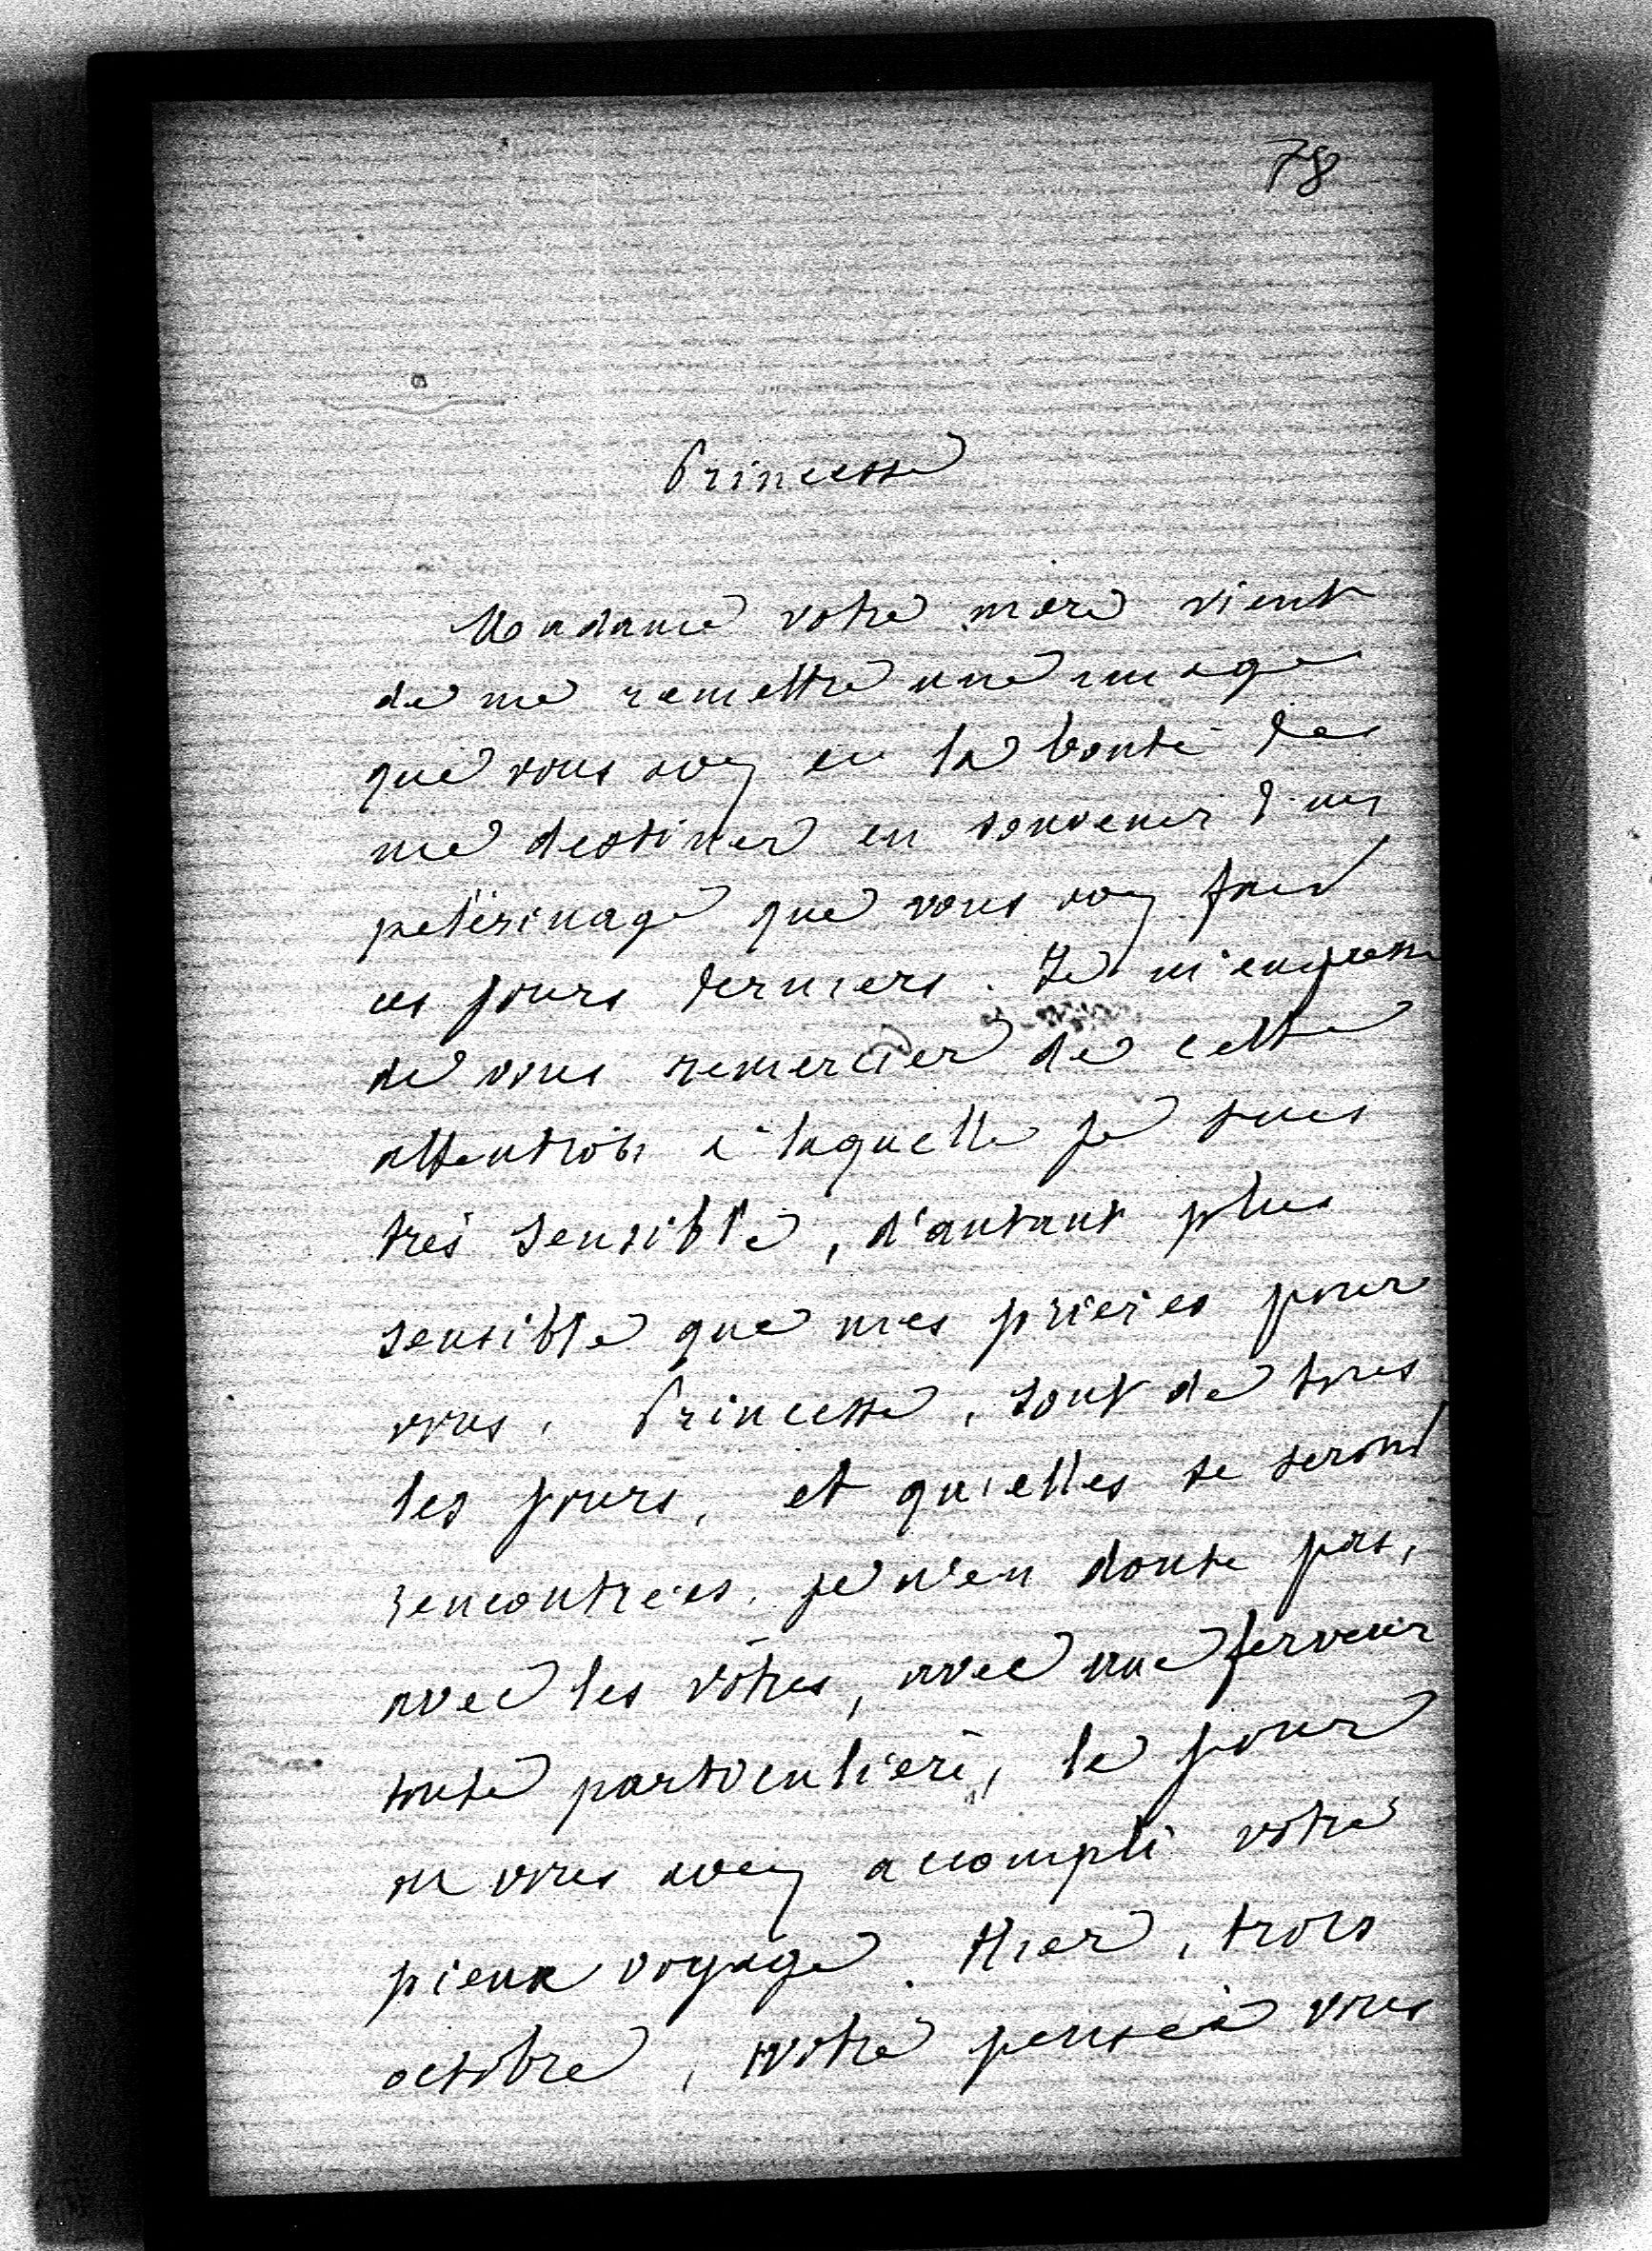 78
Princesse
Madame votre mère vient
de me remettre une image
que vous avez eu la bonté de
me destiner en souvenir d'un
pélérinage que vous avez fait
ces jours derniers. Je m'empresse
de vous remercier de cette
attention à laquelle je suis
très sensible, d'autant plus
sensible que mes prières pour
vous, Princesse, sont de tous
les jours, et qu'elles se seront
rencontrées, je n'en doute pas,
avec les vôtres, avec une ferveur
toute particulière, le jour
où vous avez accompli votre
pieux voyage. Hier, trois
octobre, notre pensée vous